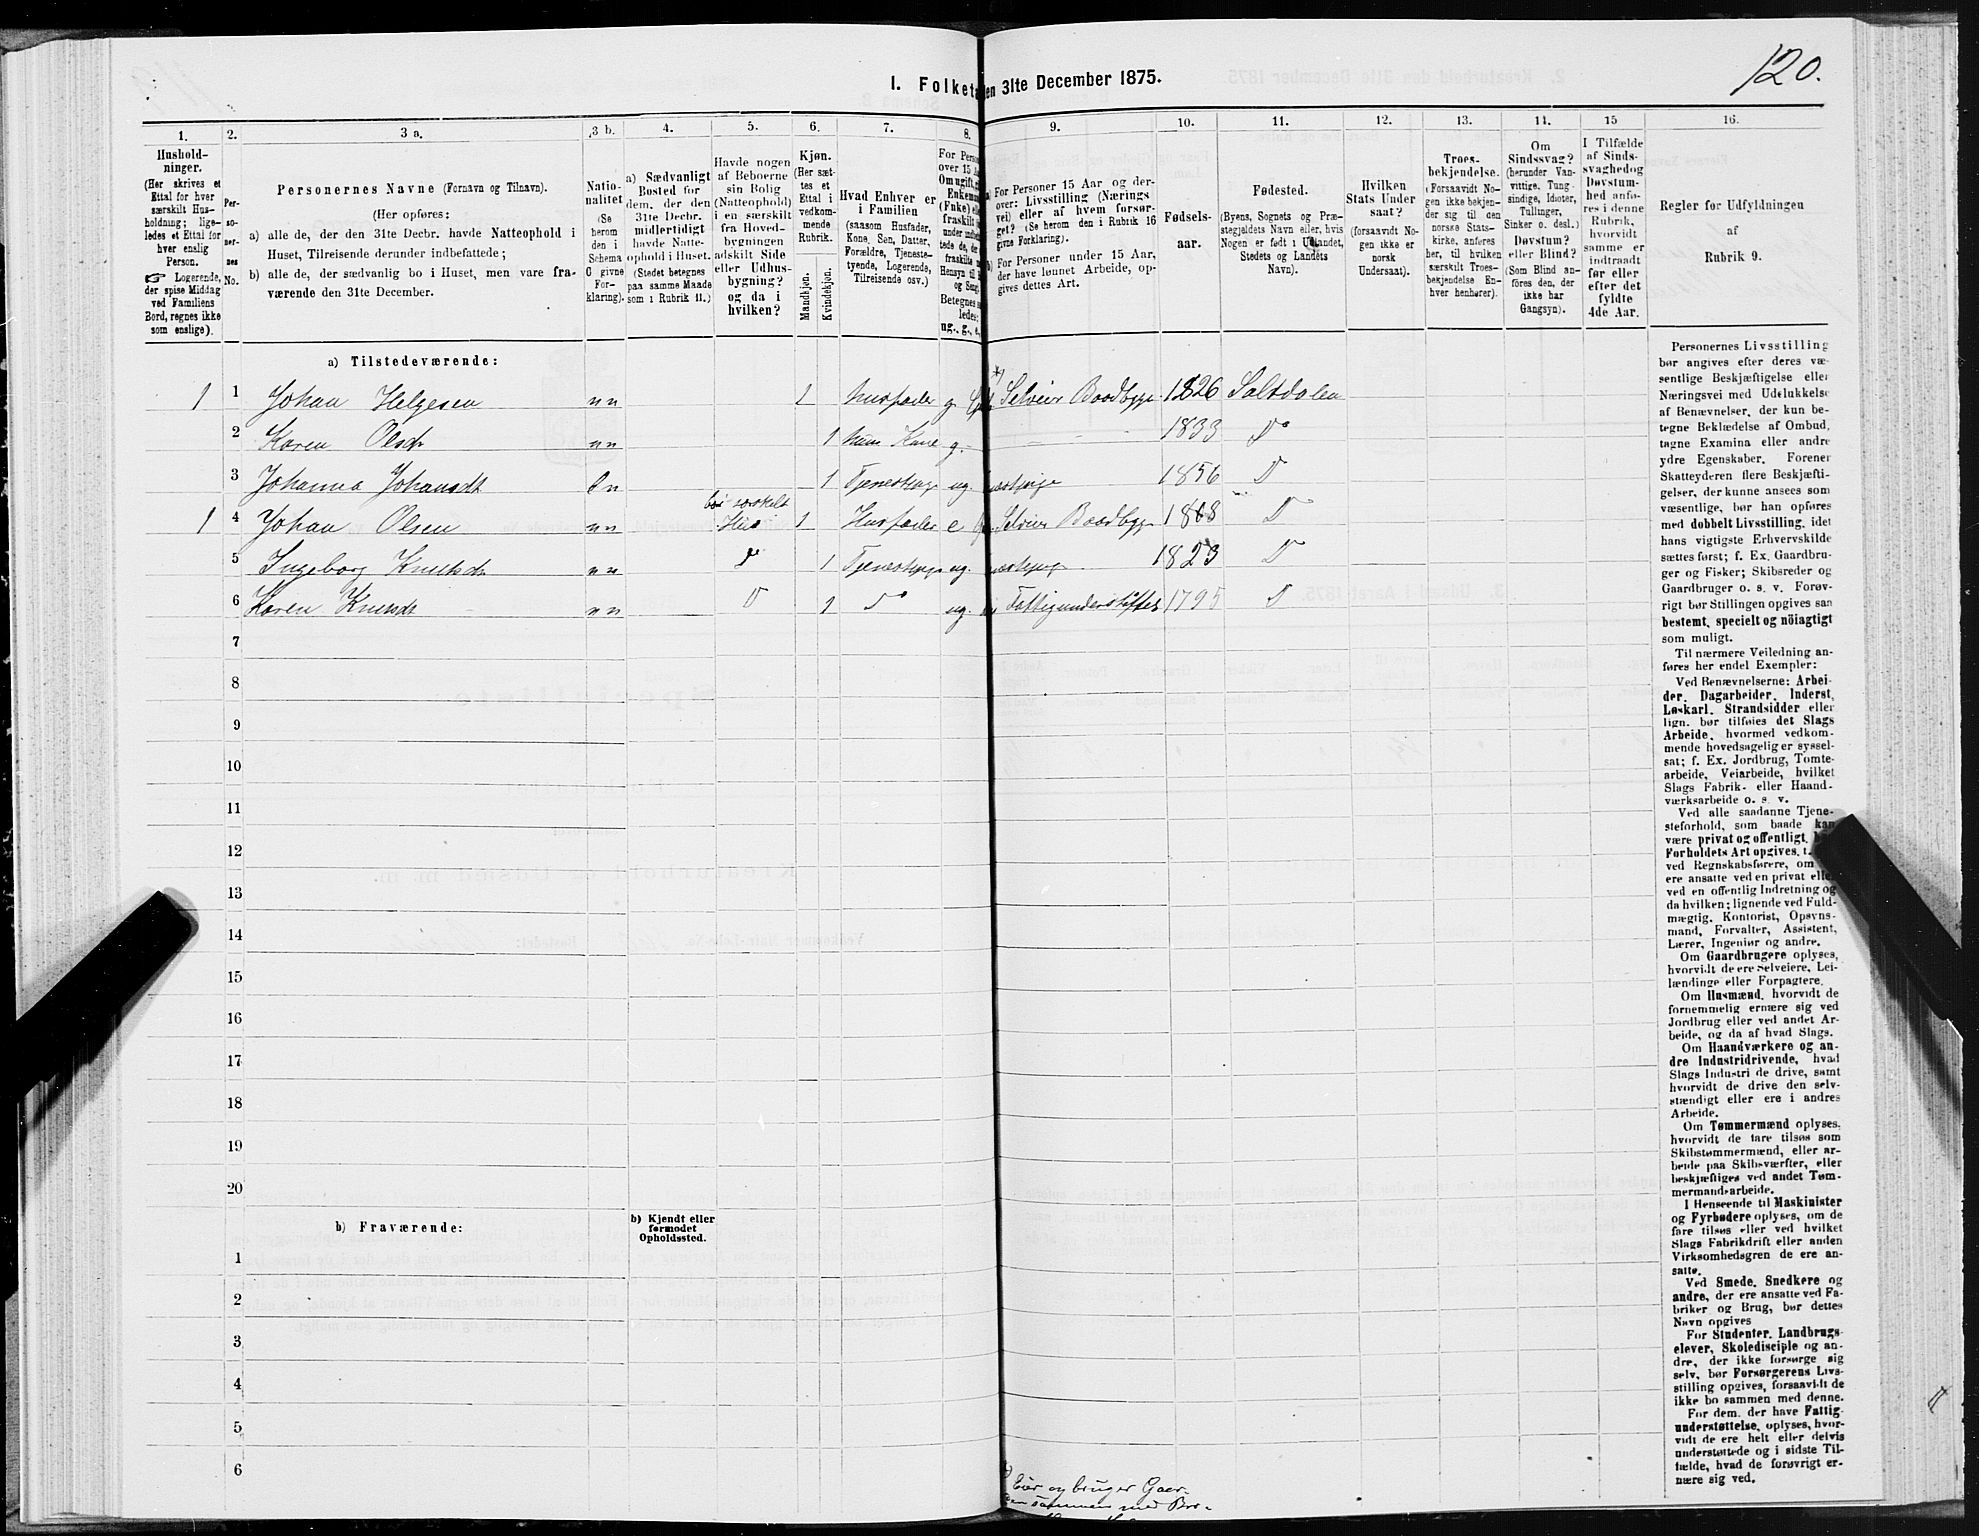 120.
I. Folketa en 31te December 1875.
1. 2. 3 a. 3 b. 4. 5. 6. 7. 8. 9. 10. 11. 12. 13. 14. 15 16.
Hushold-
ninger.
(Her skrives et
Ettal for hver
særskilt Hus-
holdning; lige-
ledes et Ettal for
hver enslig
Person.
☞ Logerende,
der spise Middag
ved Familiens
Bord, regnes ikke
som enslige).
Per-
so-
ner-
nes
No.
Personernes Navne (Fornavn og Tilnavn).
(Her opføres:
a) alle de, der den 31te Decbr. havde Natteophold i
Huset, Tilreisende derunder indbefattede;
b) alle de, der sædvanlig bo i Huset, men vare fra-
værende den 31te December.
Natio-
nalitet
(Se
herom
den i
Schema
C givne
For-
klaring).
a) Sædvanligt
Bosted for
dem, der den
31te Decbr.
midlertidigt
havde Natte-
ophold i Huset.
(Stedet betegnes
paa samme Maade
som i Rubrik 11.)
Havde nogen
af Beboerne
sin Bolig
(Natteophold)
i en særskilt
fra Hoved-
bygningen
adskilt Side
eller Udhus-
bygning?
og da i
hvilken?
Kjøn.
(Her sæt-
tes et
Ettal i
vedkom-
mende
Rubrik.
Mandkjøn.
Kvindekjøn.
Hvad Enhver er
i Familien
(saasom Husfader,
Kone, Søn, Datter,
Forældre, Tjeneste-
tyende, Logerende,
Tilreisende osv.)
For Person
over 15 A
Om ugift, g
Enkem
(Enke) el
fraskilt
under indb
tede de, der
fraskilte
Hensyn til
og Seng
Betegnes s
ledes:
ug., g., e.
a) For Personer 15 Aar og der-
over: Livsstilling (Nærings
vei) eller af hvem forsør-
get? (Se herom den i Rubrik 16
givne Forklaring).
b) For Personer under 15 Aar,
der have lønnet Arbeide, op-
gives dettes Art.
Fødsels-
aar.
Fødested.
(Byens, Sognets og Præ-
stegjeldets Navn eller, hvis
Nogen er født i Udlandet,
Stedets og Landets
Navn).
Hvilken
Stats Under
saat?
(forsaavidt No-
gen ikke er
norsk
Undersaat).
Troes-
bekjendelse.
(Forsaavidt No-
gen ikke bekjen-
der sig til den
norske Stats-
kirke, anføres
her, til hvilken
særskilt Troes-
bekjendelse En-
hver henhører).
Om
Sindssvag?
(herunder Van-
vittige, Tung-
sindige, Idioter,
Tullinger,
Sinker o. desl.)
Døvstum?
eller Blind?
(Som Blind an-
føres den, der
ikke har
Gangsyn).
I Tilfælde
af Sinds-
svaghed og
Døvstum-
hed anfø-
res i denne
Rubrik,
hvorvidt
samme er
indtraadt
før eller
efter det
fyldte
4de Aar.
Regler for Udfyldningen
af
Rubrik 9.
a) Tilstedeværende:
1 1 Johan Helgesen nn 1 Husfader g. Selveier Baadbygg. 1826 Saltdalen
2 Karen Olsdt nn 1 hans Kone g. 1833 Do
3 Johanna Johansdt n 1 Tjenestepige ug. 1856 D
1 4 Johan Olsen nn særskilt Hus 1 Husfader e Selveier Baadbygg 18 8 D
5 Ingeborg Knutsdt nn 1 Tjenestepige ug. 1823 D
6 Karen Knutsdt nn D 1 Do ug. Fattigunderstøttet 1795 D
7
8
9
10
11
12
13
14
15
16
17
18
19
20
b) Fraværende:
b) Kjendt eller
formodet
Opholdssted.
1
2
3
4
5
6
Personernes Livsstilling
bør angives efter deres væ-
sentlige Beskjæftigelse eller
Næringsvei med Udelukkelse
af Benævnelser, der kun be-
tegne Beklædelse af Ombud,
tagne Examina eller andre
ydre Egenskaber. Forener
Skatteyderen flere Beskjæfti-
gelser, der kunne ansees som
væsentlige, bør han opføres
med dobbelt Livsstilling, idet
hans vigtigste Erhvervskilde
sættes først; f. Ex. Gaardbru-
ger og Fisker; Skibsreder og
Gaardbruger o. s. v. Forøv-
rigt bør Stillingen opgives saa
bestemt, specielt og nöiagtigt
som muligt.
Til nærmere Veiledning an-
føres her endel Exempler:
Ved Benævnelserne: Arbei-
der, Dagarbeider, Inderst,
Løskarl, Strandsidder eller
lign. bør tilføies det Slags
Arbeide, hvormed vedkom-
mende hovedsagelig er syssel-
sat; f. Ex. Jordbrug, Tomte-
arbeide, Veiarbeide, hvilket
Slags Fabrik- eller Haand-
værksarbeide o. s. v.
Ved alle saadanne Tjene-
steforhold, som baade kan
være privat og offentlig,
Forholdets Art opgives, t.
ved Regnskabsførere, om
ere ansatte ved en privat eller
ved en offentlig Indretning og
da hvilken; lignende ved Fuld-
mægtig, Kontorist, Opsyns-
mand, Forvalter, Assistent,
Lærer, Ingeniør og andre.
Om Gaardbrugere oplyses,
hvorvidt de ere Selveiere, Lei-
lændinge eller Forpagtere.
Om Husmænd, hvorvidt de
fornemmelig ernære sig ved
Jordbrug eller ved andet Ar-
beide, og da af hvad Slags.
Om Haandværkere og an-
dre Industridrivende, hvad
Slags Industri de drive, samt
hvorvidt de drive den selv-
stændigt eller ere i andres
Arbeide.
Om Tømmermænd oplyses,
hvorvidt de fare tilsøs som
Skibstømmermænd, eller ar-
beide paa Skibsværfter, eller
beskjæftiges ved andet Tøm-
mermandsarbeide.
I Henseende til Maskinister
og Fyrbødere oplyses, om de
fare tilsøs eller ved hvilket
Slags Fabrikdrift eller anden
Virksomhedsgren de ere an-
satte.
Ved Smede, Snedkere og
andre, der ere ansatte ved Fa-
briker og Brug, bør dettes
Navn opgives
For Studenter, Landbrugs-
elever, Skoledisciple og an-
dre, der ikke forsørge sig
selv, bør Forsørgerens Livs-
stilling opgives, forsaavidt de
ikke bo sammen med denne.
For dem, der have Fattig-
understøttelse, oplyses, hvor-
vidt de ere helt eller delvis
understøttede og i sidste Til-
fælde, hvad de forøvrigt er-
nære sig ved.
Eier og bruger Gaar-
den sammen med Bro-